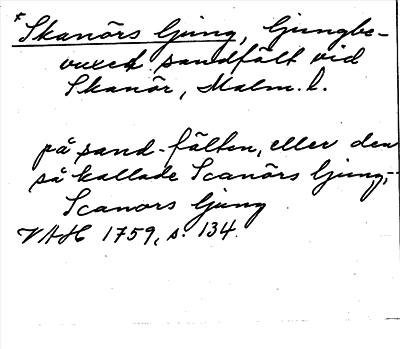 *Skanörs ljung, ljungbe-
vuxet sandfält vid
Skanör, Malm. l.
på sand-fälten, eller den
så kallade Scanörs ljung;-
Scanors ljung
VAH 1759, s. 134.